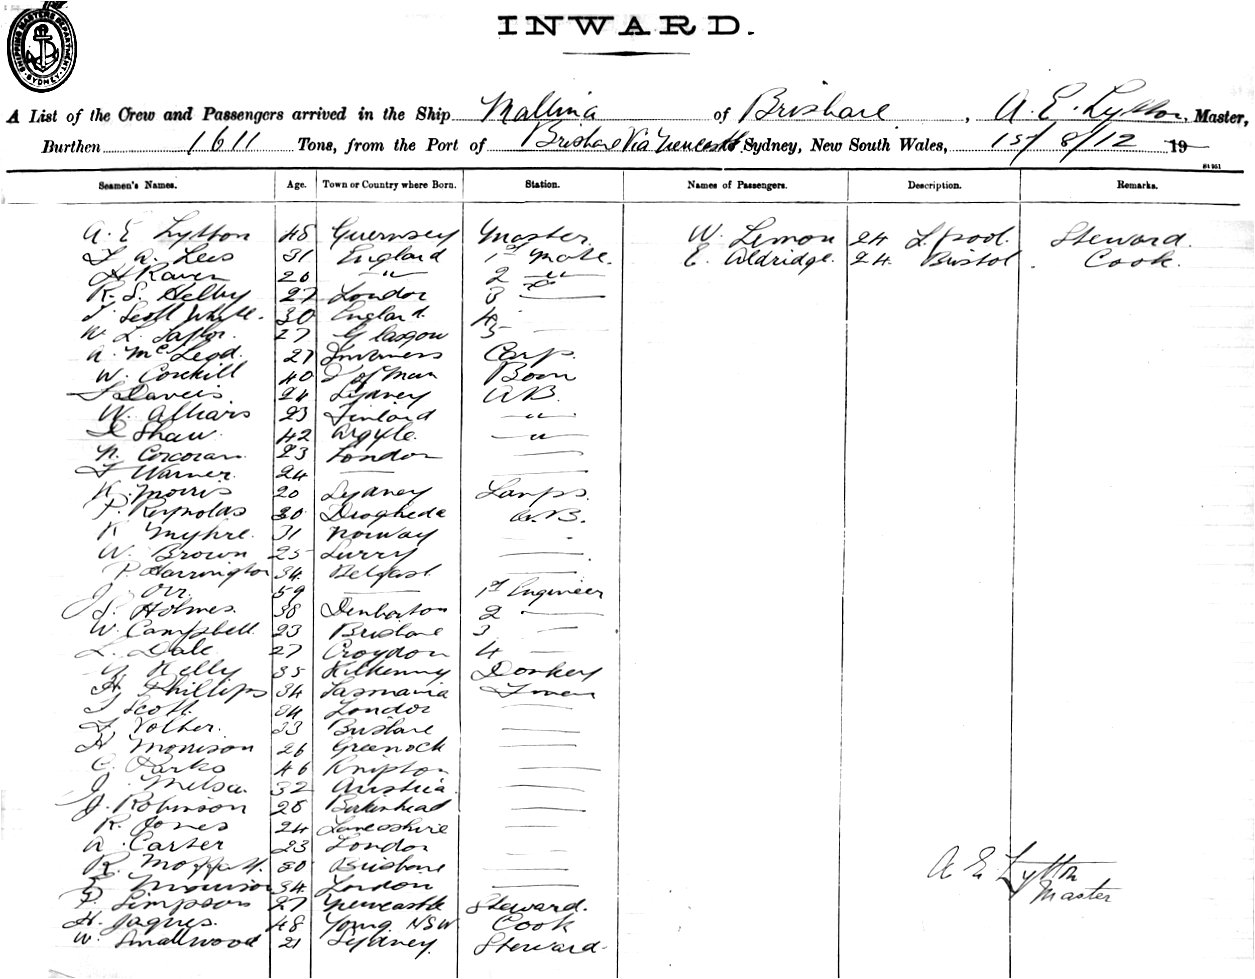 SHIPPING MASTERS DEPARTMENT SYDNEY
INWARD.
A List of the Crew and Passengers arrived in the Ship Mallina of Brisbane, A. E. Lytton, Master,
Burthen 1611 Tons, from the Port of Brisbane Via Newcastle Sydney, New South Wales, 1st/8/12 19
Seamen's Names. Age. Town or Country where Born. Station. Names of Passengers. Description. Remarks.
A. E Lytton 48 Guernsey Master W. Lemon 24 L.pool. Steward.
A. Lees 31 England 1st Mate. E. Aldridge. 24. Bristol. Cook.
H Raven 26 " 2 "
R. S. Helby 27 London 3 —
Scott White. 30 England. 4
W. L. Taylor. 27 Glasgow 5 —
A. McLeod. 27 Inverness Carp.
W. Corkill 40 I of Man Bosn
Daveis. 24 Sydney AB.
W. 23 Finland "
Shaw. 42 Argyle. "
N. Corcoran. 23 London —
F Warner. 24 — —
Morris 20 Sydney Lamps.
P. Reynolds 30 Drogheda A.B.
K Myhre. 31 Norway —
W. Brown 25 Surry —
P. Harrington 34. Belfast. —
J. Orr. 59 — 1st Engineer
S. Holmes. 38 Dunbarton 2 —
W. Campbell. 23 Brisbane 3 —
L. Dale 27 Croydon 4 —
Kelly 35 Kilkenny Donkey
H. Phillips 34 Tasmania
Scott. 34 London —
33 Brisbane —
H Morrison 26 Greenock —
C. Parks 46 Knipton —
J. 32 Austria. —
J. Robinson 28 Birkinhead —
R. Jones 24 Lancashire —
A. Carter 23 London —
R. Moffatt. 30 Brisbane —
34 London —
Simpson 27 Newcastle Steward.
H. Jaques. 48 Young. NSW Cook
W. Smallwood 21 Sydney. Steward.
A E Lytton
Master